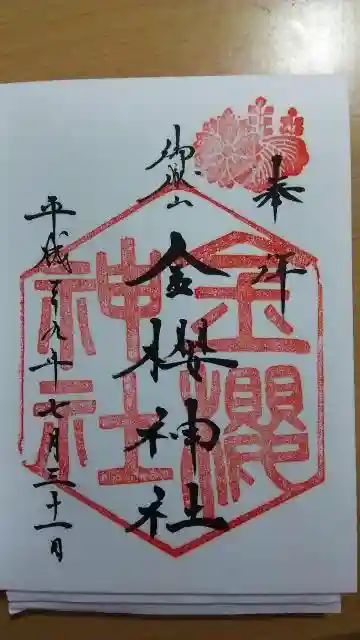 奉拝
御嶽山
金櫻神社
平成二九年七月三十一日
金櫻
神社